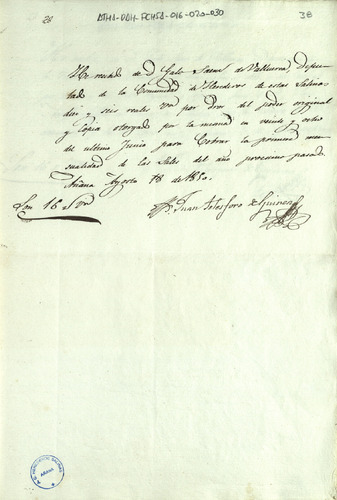 28
ATHA-DAH-FCHSA-016-020-030
38
He recivido de D. Galo Saenz de Valluerca, Diputado
de la Comunidad de Herederos de estas Salinas
diez y seis reales Vn por Dros del poder original
y Copia otorgado por la misma en veinte y ocho
de ultimo Junio para Cobrar la primera
mensualidad de las Sales del año procsimo pasado
Añana Agosto 18 de 1850.
Son 16 r Vn
Juan Telesforo de Guinea
AÑANA